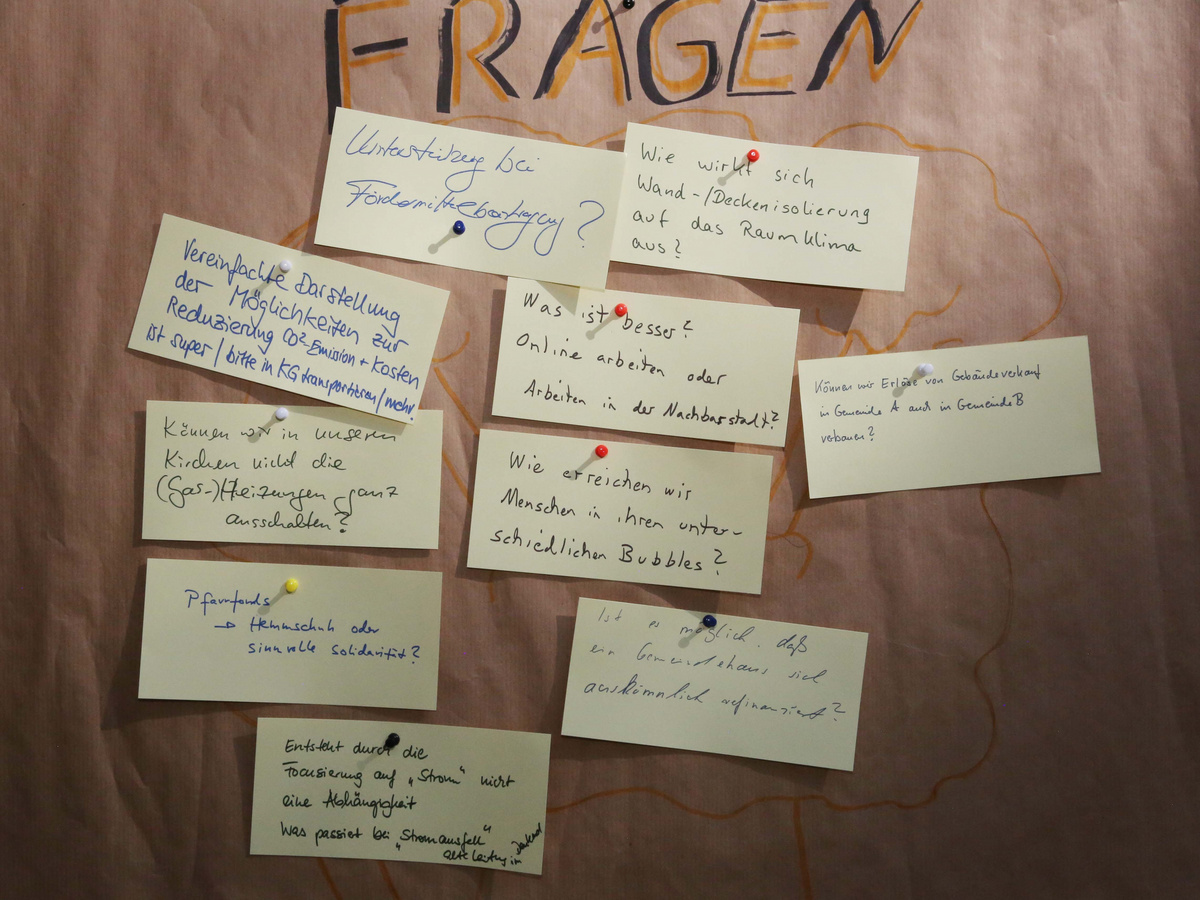 FRAGEN
Unterstützung bei
Fördermittelbeantragung?
Wie wirkt sich
Wand-/Deckenisolierung
auf das Raumklima
aus?
Vereinfachte Darstellung
der Möglichkeiten zur
Reduzierung CO2-Emission + Kosten
ist super / bitte in KG transportieren / mehr.
Was ist besser?
Online arbeiten oder
Arbeiten in der Nachbarstadt?
Können wir Erlöse von Gebäudeverkauf
in Gemeinde A auch in Gemeinde B
verbauen?
Können wir in unseren
Kirchen nicht die
(Gas-)Heizungen ganz
ausschalten?
Wie erreichen wir
Menschen in ihren unter-
schiedlichen Bubbles?
Pfarrfonds
→ Hemmschuh oder
sinnvolle Solidarität?
Ist es möglich, daß
ein Gemeindehaus sich
auskömmlich refinanziert?
Entsteht durch die
Focusierung auf „Strom" nicht
eine Abhängigkeit
Was passiert bei „Stromausfall"
alte Leitung im